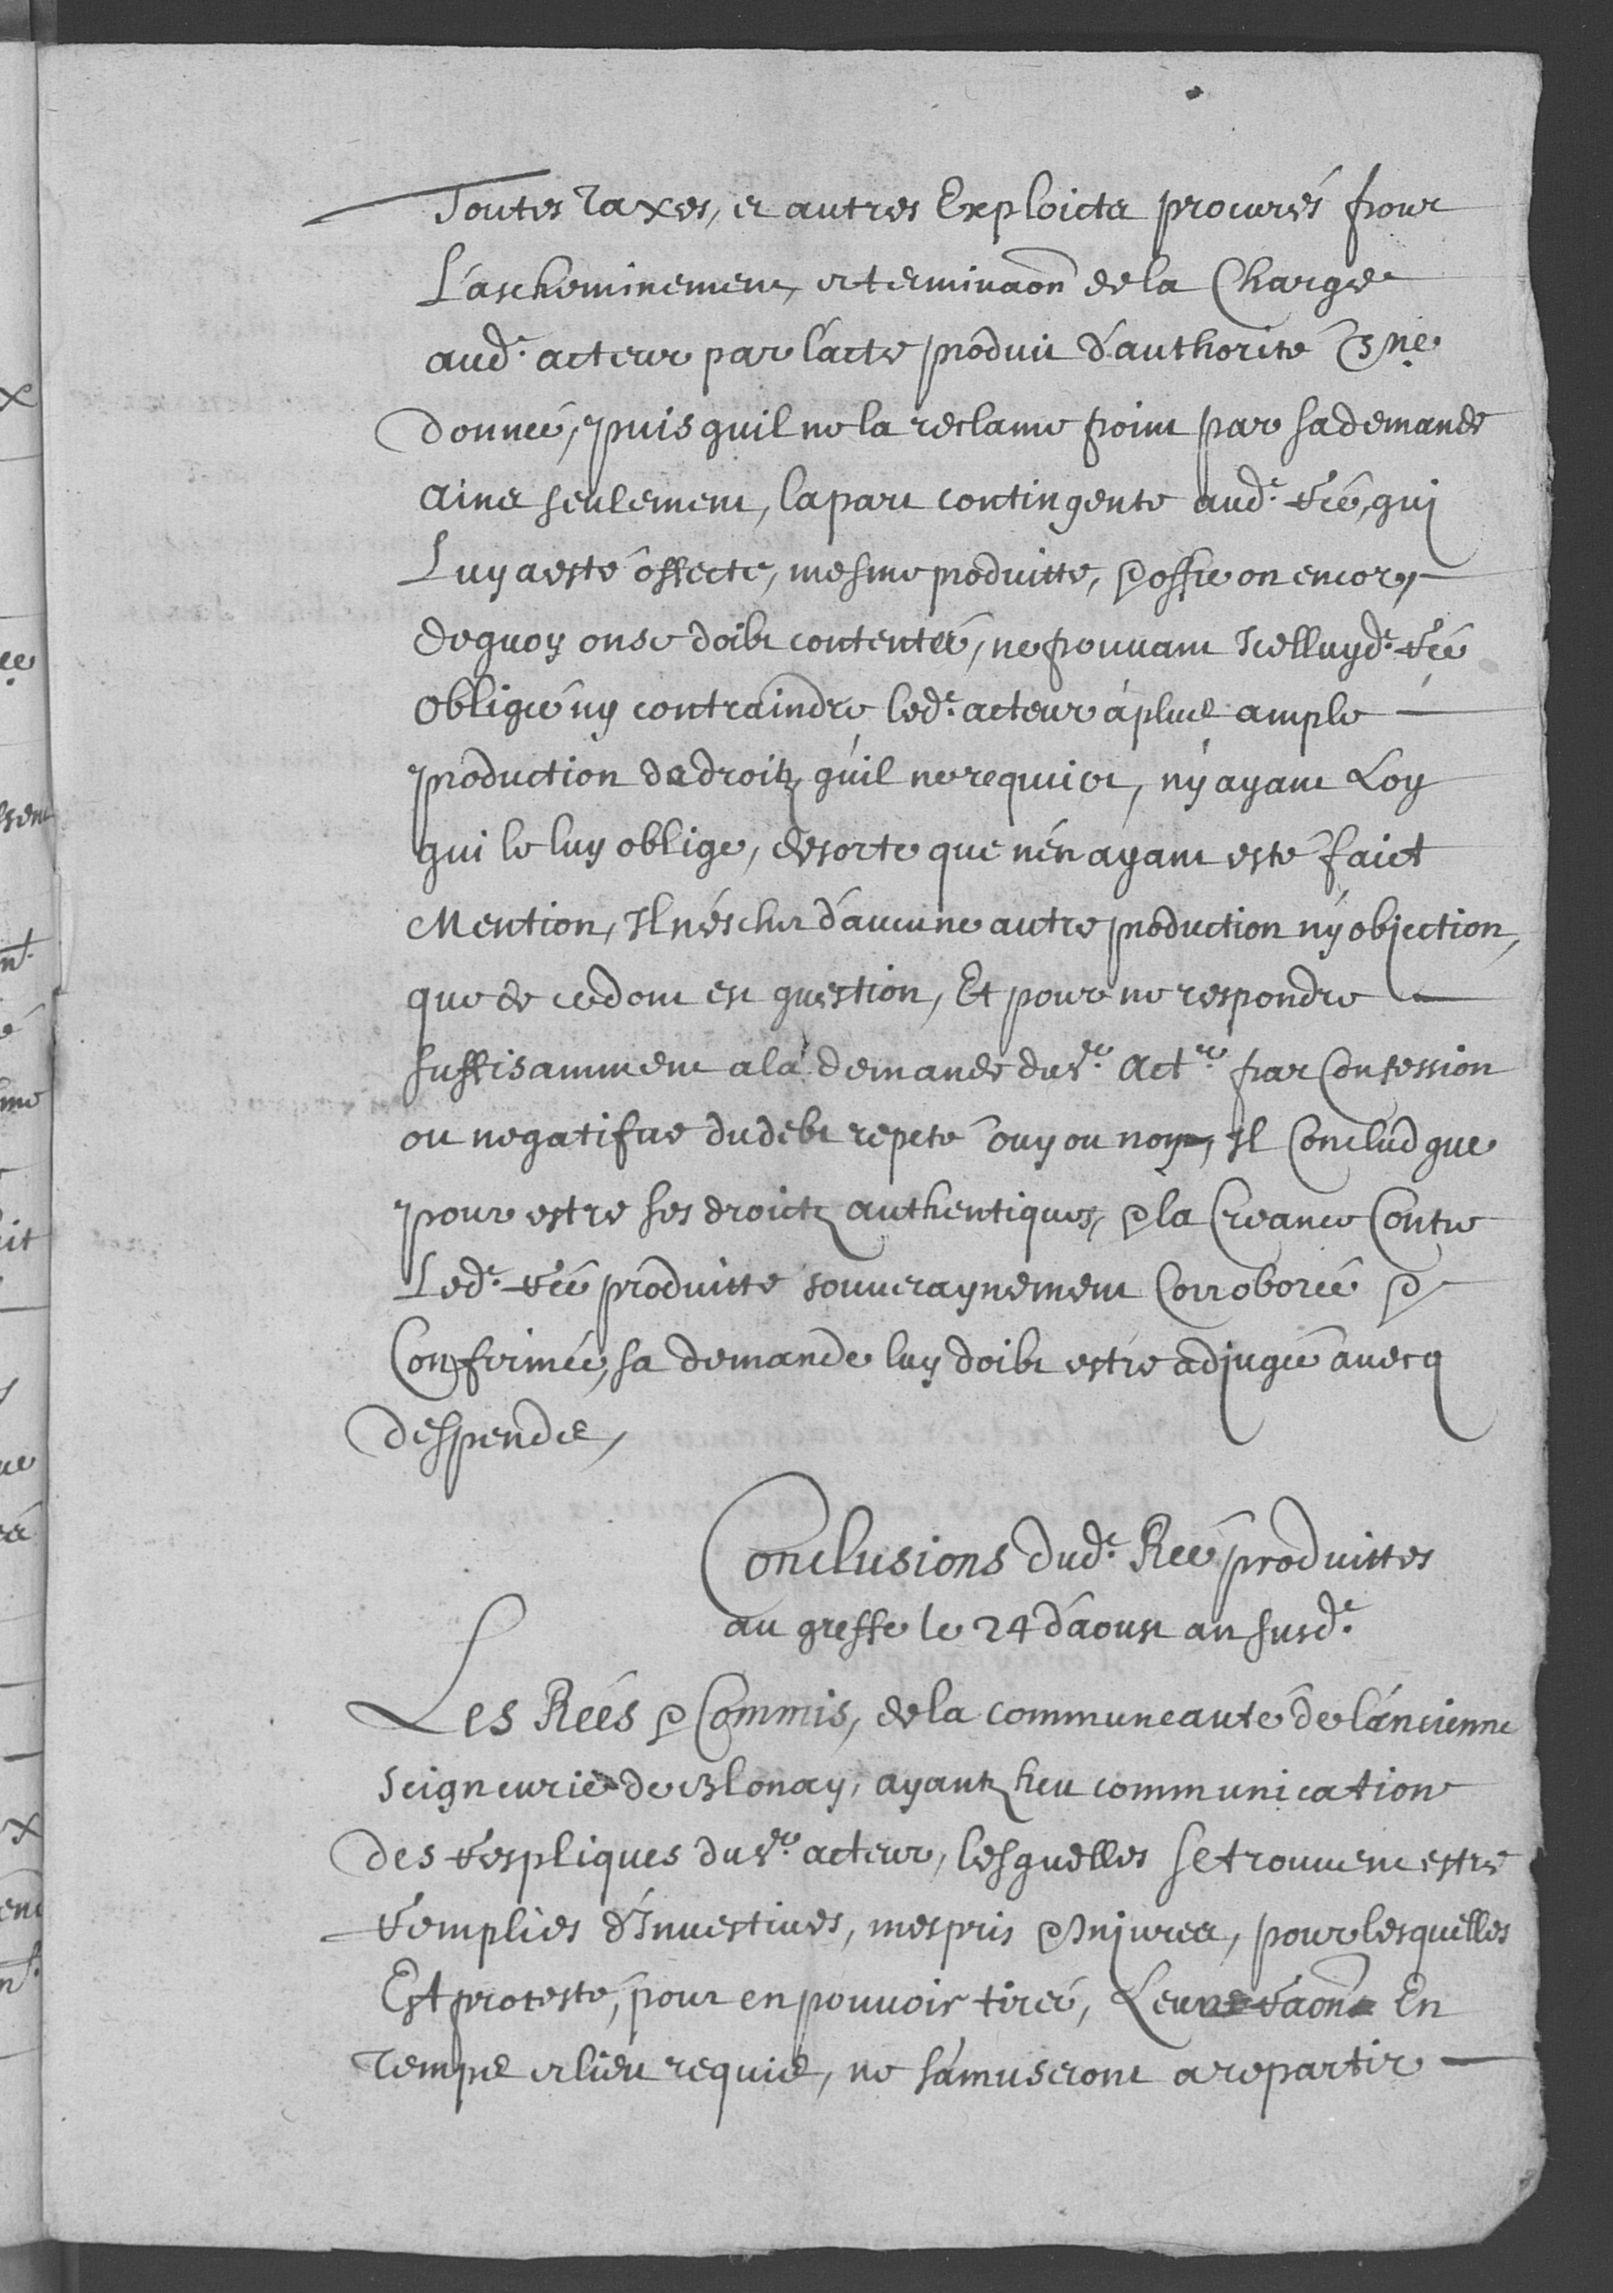 Toutes Taxes, et autres Exploicts procurés pour
L'ascheminement, et terminaōn de la Charge
aud.^e acteur par lácte produit d'authorité
donneé, puis quil ne la reclame point par sa demande
Ains seulement, la part contingente aud.^e reé, qui
Luy a esté offerte, mesme produitte, & offre on encor,
de quoy on se doibt contenter, ne pouvant Icelluyd.^e reé
Obliger ny contraindre led.^e acteur á plus ample
production de droitz qu'il ne requiert, ny ayant Loy
qui le luy oblige, de sorte que nén ayant esté faict
Mention, Il néschet d'aucune autre production ny objection,
que de ce dont est question, Et pour ne respondre
suffisamment a la demande dud.^e Act.^r par Confession
ou negatifve du debt repeté ouy ou non, Il Conclud que
pour estre ses droictz authentiques, & la Creance Contre
Led.^e reé produitte souueraynement Corroboreé &
Confirmeé, sa demande luy doibt estre adjugeé auecq
despends,
Conclusions dud.^e Reé produittes
au greffe le 24 d'aoust an susd.^e
Les Reés & Commis, de la communeauté de láncienne
Seigneurie de Blonay, ayantz heu communication
des respliques dud.^e acteur, lesquelles se trouuent estre
remplies d'Inuectiues, mespris & Injures, pour lesquelles
Est protesté, pour en pouuoir tirer, Leurs raōns En
Temps et lieu requis, ne sámuseront a repartir